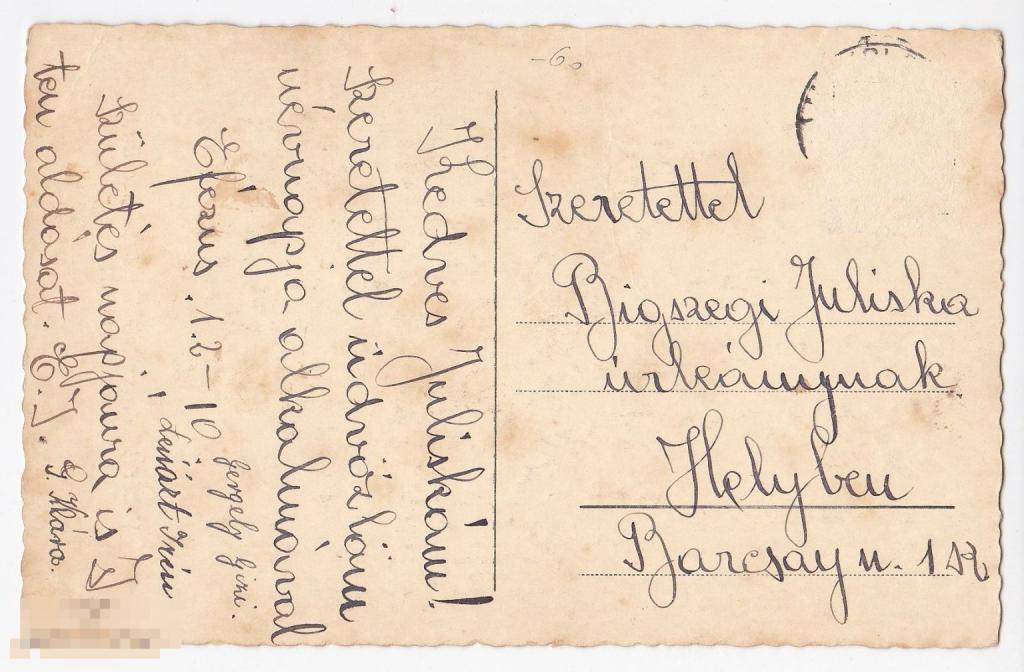 -60
Kedves Juliskám!
Szeretettel üdvözlöm
névnapja alkalmával
Efézus. 1.2-10
Gergely Gizi.
Lénárt Irén
Születés napjaura is I
ten áldását. E. I.
G. Klára.
Szeretettel
Bigszegi Juliska
úrleánynak
Helyben
Barcsay u. 12